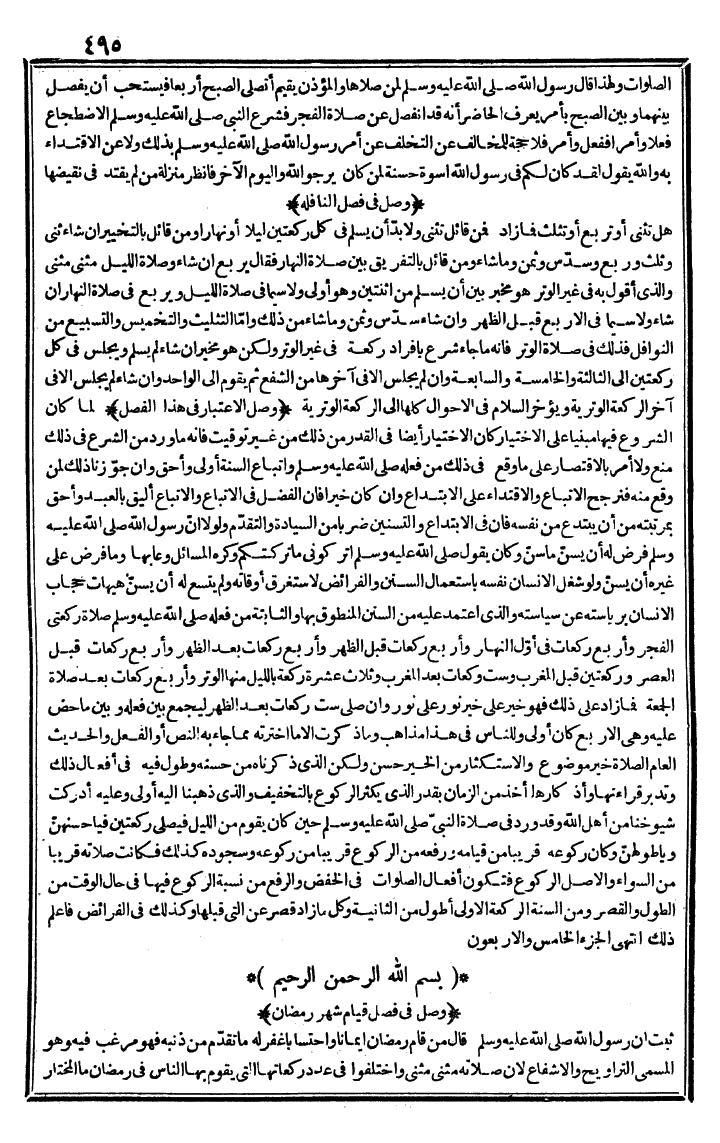 ٤٩٥
الصلوات ولهذا قال رسول الله صلى الله عليه وسلم لمن صلاها والمؤذن يقيم أتصلى الصبح أربعا فيستحب أن يفصل
بينهما وبين الصبح بأمر يعرف الحاضر أنه قد انفصل عن صلاة الفجر فشرع النبي صلى الله عليه وسلم الاضطجاع
فعلا وأمرا ففعل وأمر فلا حجة للمخالف عن التخلف عن أمر رسول الله صلى الله عليه وسلم بذلك ولا عن الاقتداء
به والله يقول لقد كان لكم فى رسول الله اسوة حسنة لمن كان يرجو الله واليوم الآخر فانظر منزلة من لم يقتد فى نقيضها
﴿وصل فى فصل النافلة﴾
هل تثنى أو تربع أو تثلث فـازاد فمن قائل تثنى ولا بدّ أن يسلم فى كل ركعتين ليلا أو نهارا ومن قائل بالتخيير ان شاء ثنى
وثلث وربع وسدّس وثمن وما شاء ومن قائل بالتفريق بين صلاة النهار فقال يربع ان شاء وصلاة الليل مثنى مثنى
والذى أقول به فى غير الوتر هو مخير بين أن يسلم من اثنتين وهو أولى ولا سيما فى صلاة الليل ويربع فى صلاة النهار ان
شاء ولا سيما فى الاربع قبل الظهر وان شاء سدّس وثمن وما شاء من ذلك وامّا التثليث والتخميس والتسبيع من
النوافل فذلك فى صلاة الوتر فانه ما جاء شرع بافراد ركعة فى غير الوتر ولكن هو مخير ان شاء لم يسلم ويجلس فى كل
ركعتين الى الثالثة والخامسة والسابعة وان لم يجلس الا فى آخرها من الشفع ثم يقوم الى الواحد وان شاء لم يجلس الا فى
آخر الركعة الوترية ويؤخر السلام فى الاحوال كلها الى الركعة الوترية ﴿وصل الاعتبار فى هذا الفصل﴾ لما كان
الشروع فيها مبنيا على الاختيار كان الاختيار أيضا فى القدر من ذلك من غير توقيت فانه ما ورد من الشرع فى ذلك
منع ولا أمر بالاقتصار على ما وقع فى ذلك من فعله صلى الله عليه وسلم واتباع السنة أولى وأحق وان جوّزنا ذلك لمن
وقع منه فنرجح الاتباع والاقتداء على الابتداع وان كان خيرا فان الفضل فى الاتباع والاتباع أليق بالعبد وأحق
بمرتبته من أن يبتدع من نفسه فان فى الابتداع والتسنين ضربا من السيادة والتقدّم ولولا انّ رسول الله صلى الله عليه
وسلم فرض له أن يسنّ ما سنّ وكان يقول صلى الله عليه وسلم اتركونى ما تركتكم وكره المسائل وعابها وما فرض على
غيره أن يسنّ ولو شغل الانسان نفسه باستعمال السنن والفرائض لاستغرق أوقاته ولم يتسع له أن يسنّ هيهات حجاب
الانسان برياسته عن سياسته والذى اعتمد عليه من السنن المنطوق بها والثابتة من فعله صلى الله عليه وسلم صلاة ركعتى
الفجر وأربع ركعات فى أوّل النهار وأربع ركعات قبل الظهر وأربع ركعات بعد الظهر وأربع ركعات قبل
العصر وركعتين قبل المغرب وست ركعات بعد المغرب وثلاث عشرة ركعة بالليل منها الوتر وأربع ركعات بعد صلاة
الجمعة فما زاد على ذلك فهو خير على خير نور على نور وان صلى ست ركعات بعد الظهر ليجمع بين فعله وبين ما حض
عليه وهى الاربع كان أولى وللناس فى هذا مذاهب وما ذكرت الا ما اخترته مما جاء به النص أو الفعل والحديث
العام الصلاة خير موضوع والاستكثار من الخير حسن ولكن الذى ذكرناه من حسنه وطول فيه فى أفعال ذلك
وتدبر قراءتها وأذكارها أخذ من الزمان بقدر الذى يكثر الركوع بالتخفيف والذى ذهبنا اليه أولى وعليه أدركت
شيوخنا من أهل الله وقد ورد فى صلاة النبىّ صلى الله عليه وسلم حين كان يقوم من الليل فيصلى ركعتين فيا حسنهنّ
ويا طولهنّ وكان ركوعه قريبا من قيامه ورفعه من الركوع قريبا من ركوعه وسجوده كذلك فكانت صلاته قريبا
من السواء والاصل الركوع فتكون أفعال الصلوات فى الخفض والرفع من نسبة الركوع فيها فى حال الوقت من
الطول والقصر ومن السنة الركعة الاولى أطول من الثانية وكل ما زاد قصر عن التى قبلها وكذلك فى الفرائض فاعلم
ذلك انتهى الجزء الخامس والاربعون
*( بسم الله الرحمن الرحيم )*
﴿وصل فى فصل قيام شهر رمضان﴾
ثبت ان رسول الله صلى الله عليه وسلم قال من قام رمضان ايمانا واحتسابا غفر له ما تقدّم من ذنبه فهو مرغب فيه وهو
المسمى التراويح والاشفاع لان صلاته مثنى مثنى واختلفوا فى عدد ركعاتها التى يقوم بها الناس فى رمضان ما المختار